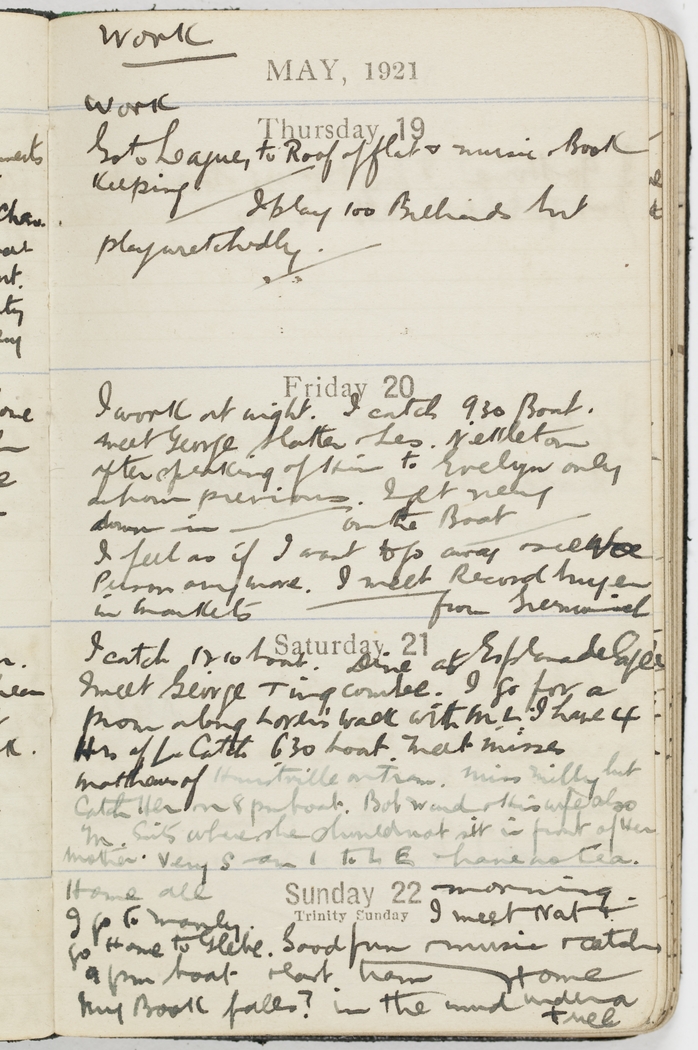 Work
MAY, 1921
Work
Thursday 19
Go to League, to Roof of flat & music Book
Keeping
I play 100 Billiards but
play wretchedly.
Friday 20
I work at night. I catch 930 Boat.
meet George Slatter & Les. Nettleton
after speaking of Him to Evelyn only
an hour previous. I get
down in on the Boat
I feel as if I want to go away & see
Person any more. I meet Record buyer
in markets from
Saturday 21
I catch 1210 boat. Dine at Esplanade Cafe
I meet George Tingcombe. I go for a
prom along Lovers walk with M L. I have 4
Hrs of L. Catch 630 boat meet misses
mathews of Hunstville on tram. Miss Milly but
Catch Her on 8 pm boat. Bob Ward & His wife also
M. Sits where she should not sit in front of Her
mother. Very S I to L E have no tea.
Home all
Sunday 22 morning.
Trinity Sunday
I go to Manly. I meet Nat &
go Home to Glebe. Good fun & music & catch
9 pm boat & last tram Home
My Book falls? in the mud under a
tree